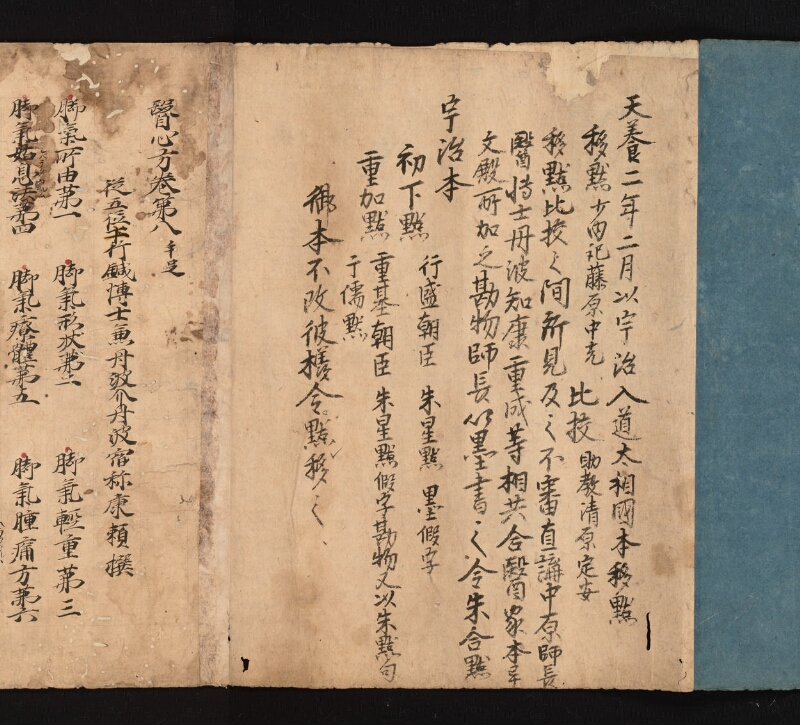 天養二年二月以宇治入道太相國本移點
移點少内記藤原中光 比校助教清原定安
移點比校之間所見及之不審直講中原師長
醫博士丹波知康重成等相共合醫家本畢
文殿所加之勘物師長以墨書之令朱合點
宇治本
初下點 行盛朝臣 朱星點 墨假字
重加點 重基朝臣 朱星點假字勘物又以朱點句
于儒點
御本不改彼樣令點移之
醫心方卷第八 手足
從五位下行鍼博士兼丹波介丹波宿祢康頼撰
脚氣所由第一 脚氣形狀第二 脚氣輕重第三
脚氣姑息法第四 脚氣療體第五 脚氣腫痛方第六